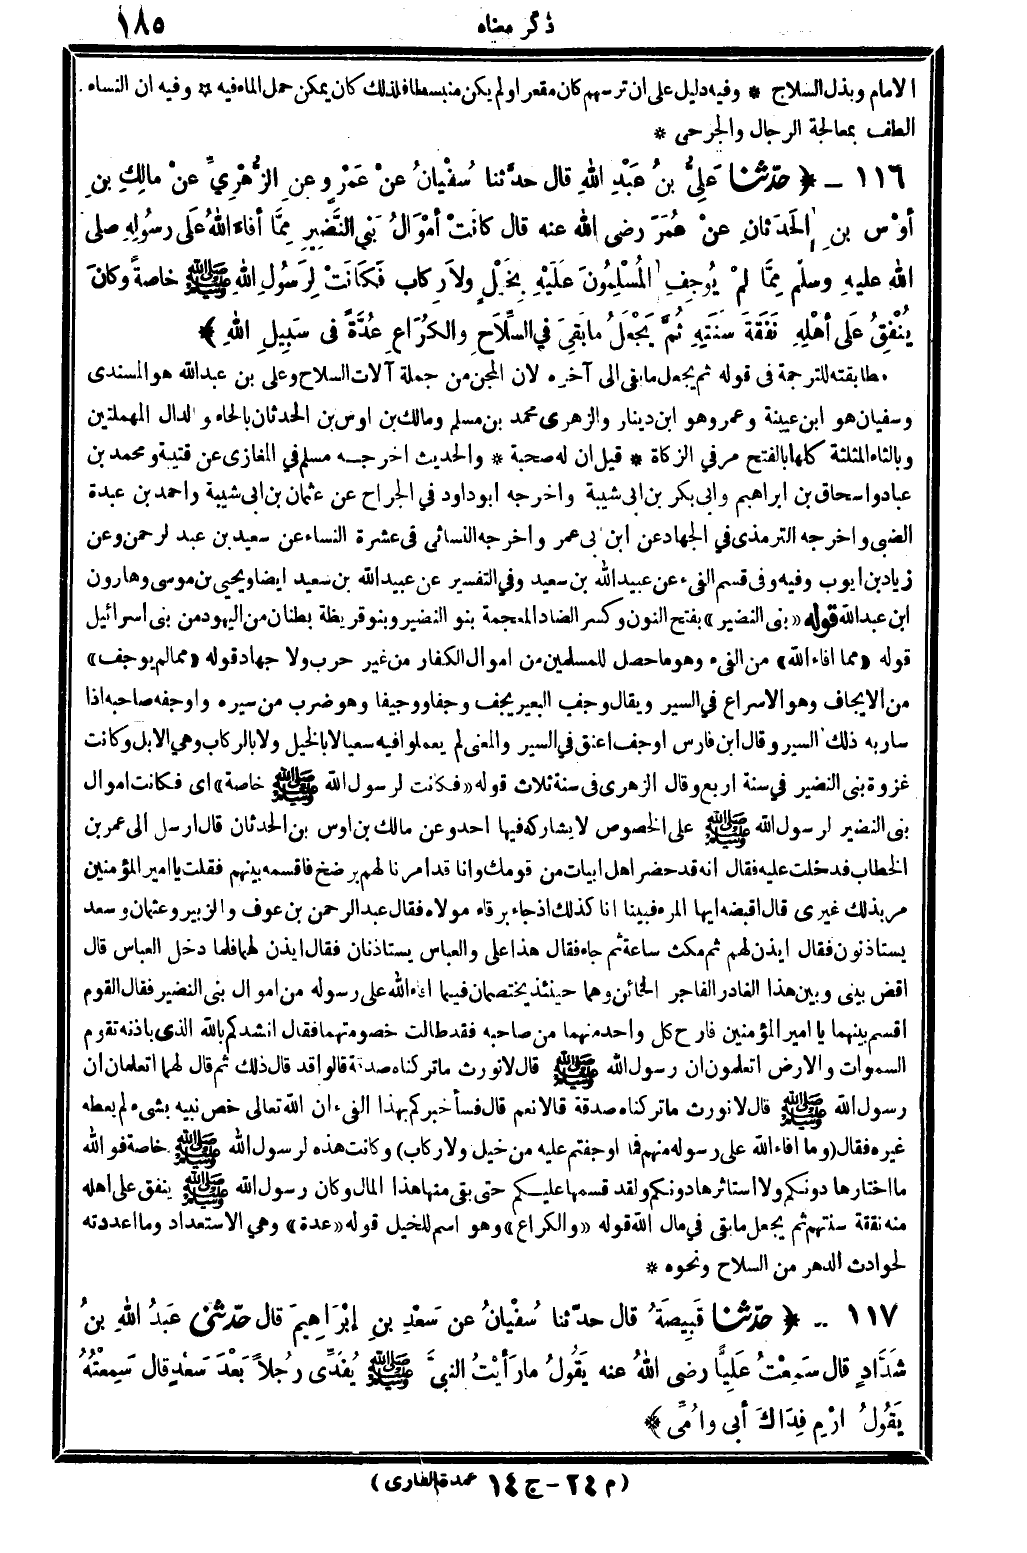 ذكر معناه ١٨٥
الامام وبذل السلاح * وفيه دليل على ان ترسهم كان مقعرا ولم يكن منبسطا فلذلك كان يمكن حمل الماء فيه * وفيه ان النساء
الطف بمعالجة الرجال والجرحى *
١١٦ - ﴿ حدّثنا عَلِيُّ بنُ عَبْدِ اللهِ قال حدَّثنا سُفْيانُ عنْ عَمْرٍو عنِ الزُّهْرِيِّ عنْ مالِكِ بنِ
أوْسِ بنِ الحَدَثانِ عنْ عُمَرَ رضى الله عنه قال كانَتْ أمْوَالُ بَنِي النَّضِيرِ مِمَّا أفاءَ اللهُ عَلَى رسولِهِ صلى
الله عليهِ وسلّم مِمَّا لمْ يُوجِفِ المُسْلِمُونَ عَلَيْهِ بِخَيْلٍ ولاَ رِكابٍ فَكانَتْ لِرَسُولِ اللهِ ﷺ خاصةً وكانَ
يُنْفِقُ عَلَى أهْلِهِ نَفَقَةَ سَنَتِهِ ثُمَّ يَجْعَلُ ما بَقِىَ في السِّلاَحِ والكُرَاعِ عُدَّةً فى سَبِيلِ اللهِ ﴾
مطابقته للترجمة فى قوله ثم يجعل ما بقى الى آخره لان المجن من جملة آلات السلاح وعلى بن عبدالله هو المسندى
وسفيان هو ابن عيينة وعمرو هو ابن دينار والزهرى محمد بن مسلم ومالك بن اوس بن الحدثان بالحاء والدال المهملتين
وبالثاء المثلثة كلها بالفتح مر في الزكاة * قيل ان له صحبة * والحديث اخرجه مسلم في المغازى عن قتيبة ومحمد بن
عباد واسحاق بن ابراهيم وابى بكر بن ابى شيبة واخرجه ابو داود في الجراح عن عثمان بن ابى شيبة واحمد بن عبدة
الضبى واخرجه الترمذى في الجهاد عن ابن ابى عمر واخرجه النسائى فى عشرة النساء عن سعيد بن عبد الرحمن وعن
زياد بن ايوب وفيه وفى قسم الفىء عن عبيد الله بن سعيد وفي التفسير عن عبيد الله بن سعيد ايضا ويحيى بن موسى وهارون
ابن عبدالله قوله «بنى النضير» بفتح النون وكسر الضاد المعجمة بنو النضير وبنو قريظة بطنان من اليهود من بنى اسرائيل
قوله «مما افاء الله» من الفىء وهو ما حصل للمسلمين من اموال الكفار من غير حرب ولا جهاد قوله «مما لم يوجف»
من الايجاف وهو الاسراع في السير ويقال وجف البعير يجف وجفا ووجيفا وهو ضرب من سيره واوجفه صاحبه اذا
سار به ذلك السير وقال ابن فارس اوجف اعنق في السير والمعنى لم يعملوا فيه سعيا لا بالخيل ولا بالركاب وهي الابل وكانت
غزوة بنى النضير في سنة اربع وقال الزهرى فى سنة ثلاث قوله «فكانت لرسول الله ﷺ خاصة» اى فكانت اموال
بنى النضير لرسول الله ﷺ على الخصوص لا يشاركه فيها احد وعن مالك بن اوس بن الحدثان قال ارسل الى عمر بن
الخطاب فدخلت عليه فقال انه قد حضر اهل ابيات من قومك وانا قد امرنا لهم برضخ فاقسمه بينهم فقلت يا امير المؤمنين
مر بذلك غيرى قال اقبضه ايها المرء فبينا انا كذلك اذ جاء يرفاء مولاه فقال عبد الرحمن بن عوف والزبير وعثمان وسعد
يستاذنون فقال ايذن لهم ثم مكث ساعة ثم جاء فقال هذا على والعباس يستاذنان فقال ايذن لهما فلما دخل العباس قال
اقض بينى وبين هذا الغادر الفاجر الخائن وهما حينئذ يختصمان فيما افاء الله على رسوله من اموال بنى النضير فقال القوم
اقسم بينهما يا امير المؤمنين فارح كل واحد منهما من صاحبه فقد طالت خصومتهما فقال انشدكم بالله الذى باذنه تقوم
السموات والارض اتعلمون ان رسول الله ﷺ قال لا نورث ما تركناه صدقة قالوا قد قال ذلك ثم قال لهما اتعلمان ان
رسول الله ﷺ قال لا نورث ما تركناه صدقة قالا نعم قال فسأخبركم بهذا الفىء ان الله تعالى خص نبيه بشىء لم يعطه
غيره فقال (وما افاء الله على رسوله منهم فما اوجفتم عليه من خيل ولا ركاب) وكانت هذه لرسول الله ﷺ خاصة فو الله
ما اختارها دونكم ولا استاثرها دونكم ولقد قسمها عليكم حتى بقى منها هذا المال وكان رسول الله ﷺ ينفق على اهله
منه نفقة سنتهم ثم يجعل ما بقى في مال الله قوله «والكراع» وهو اسم للخيل قوله «عدة» وهي الاستعداد وما اعددته
لحوادث الدهر من السلاح ونحوه *
١١٧ - ﴿ حدّثنا قَبِيصَةُ قال حدّثنا سُفْيانُ عن سَعْدِ بنِ إبْرَاهِيمَ قال حدّثنى عَبدُ اللهِ بنُ
شَدَّادٍ قال سَمِعْتُ عَلِيًّا رضى اللهُ عنه يَقُولُ ما رَأيْتُ النبىَّ ﷺ يُفَدِّى رجُلاً بَعْدَ سَعْدٍ قال سَمِعْتُهُ
يَقُولُ ارْمِ فِدَاكَ أبى وامِّى ﴾
(م ٢٤ - ج ١٤ عمدة القارى)